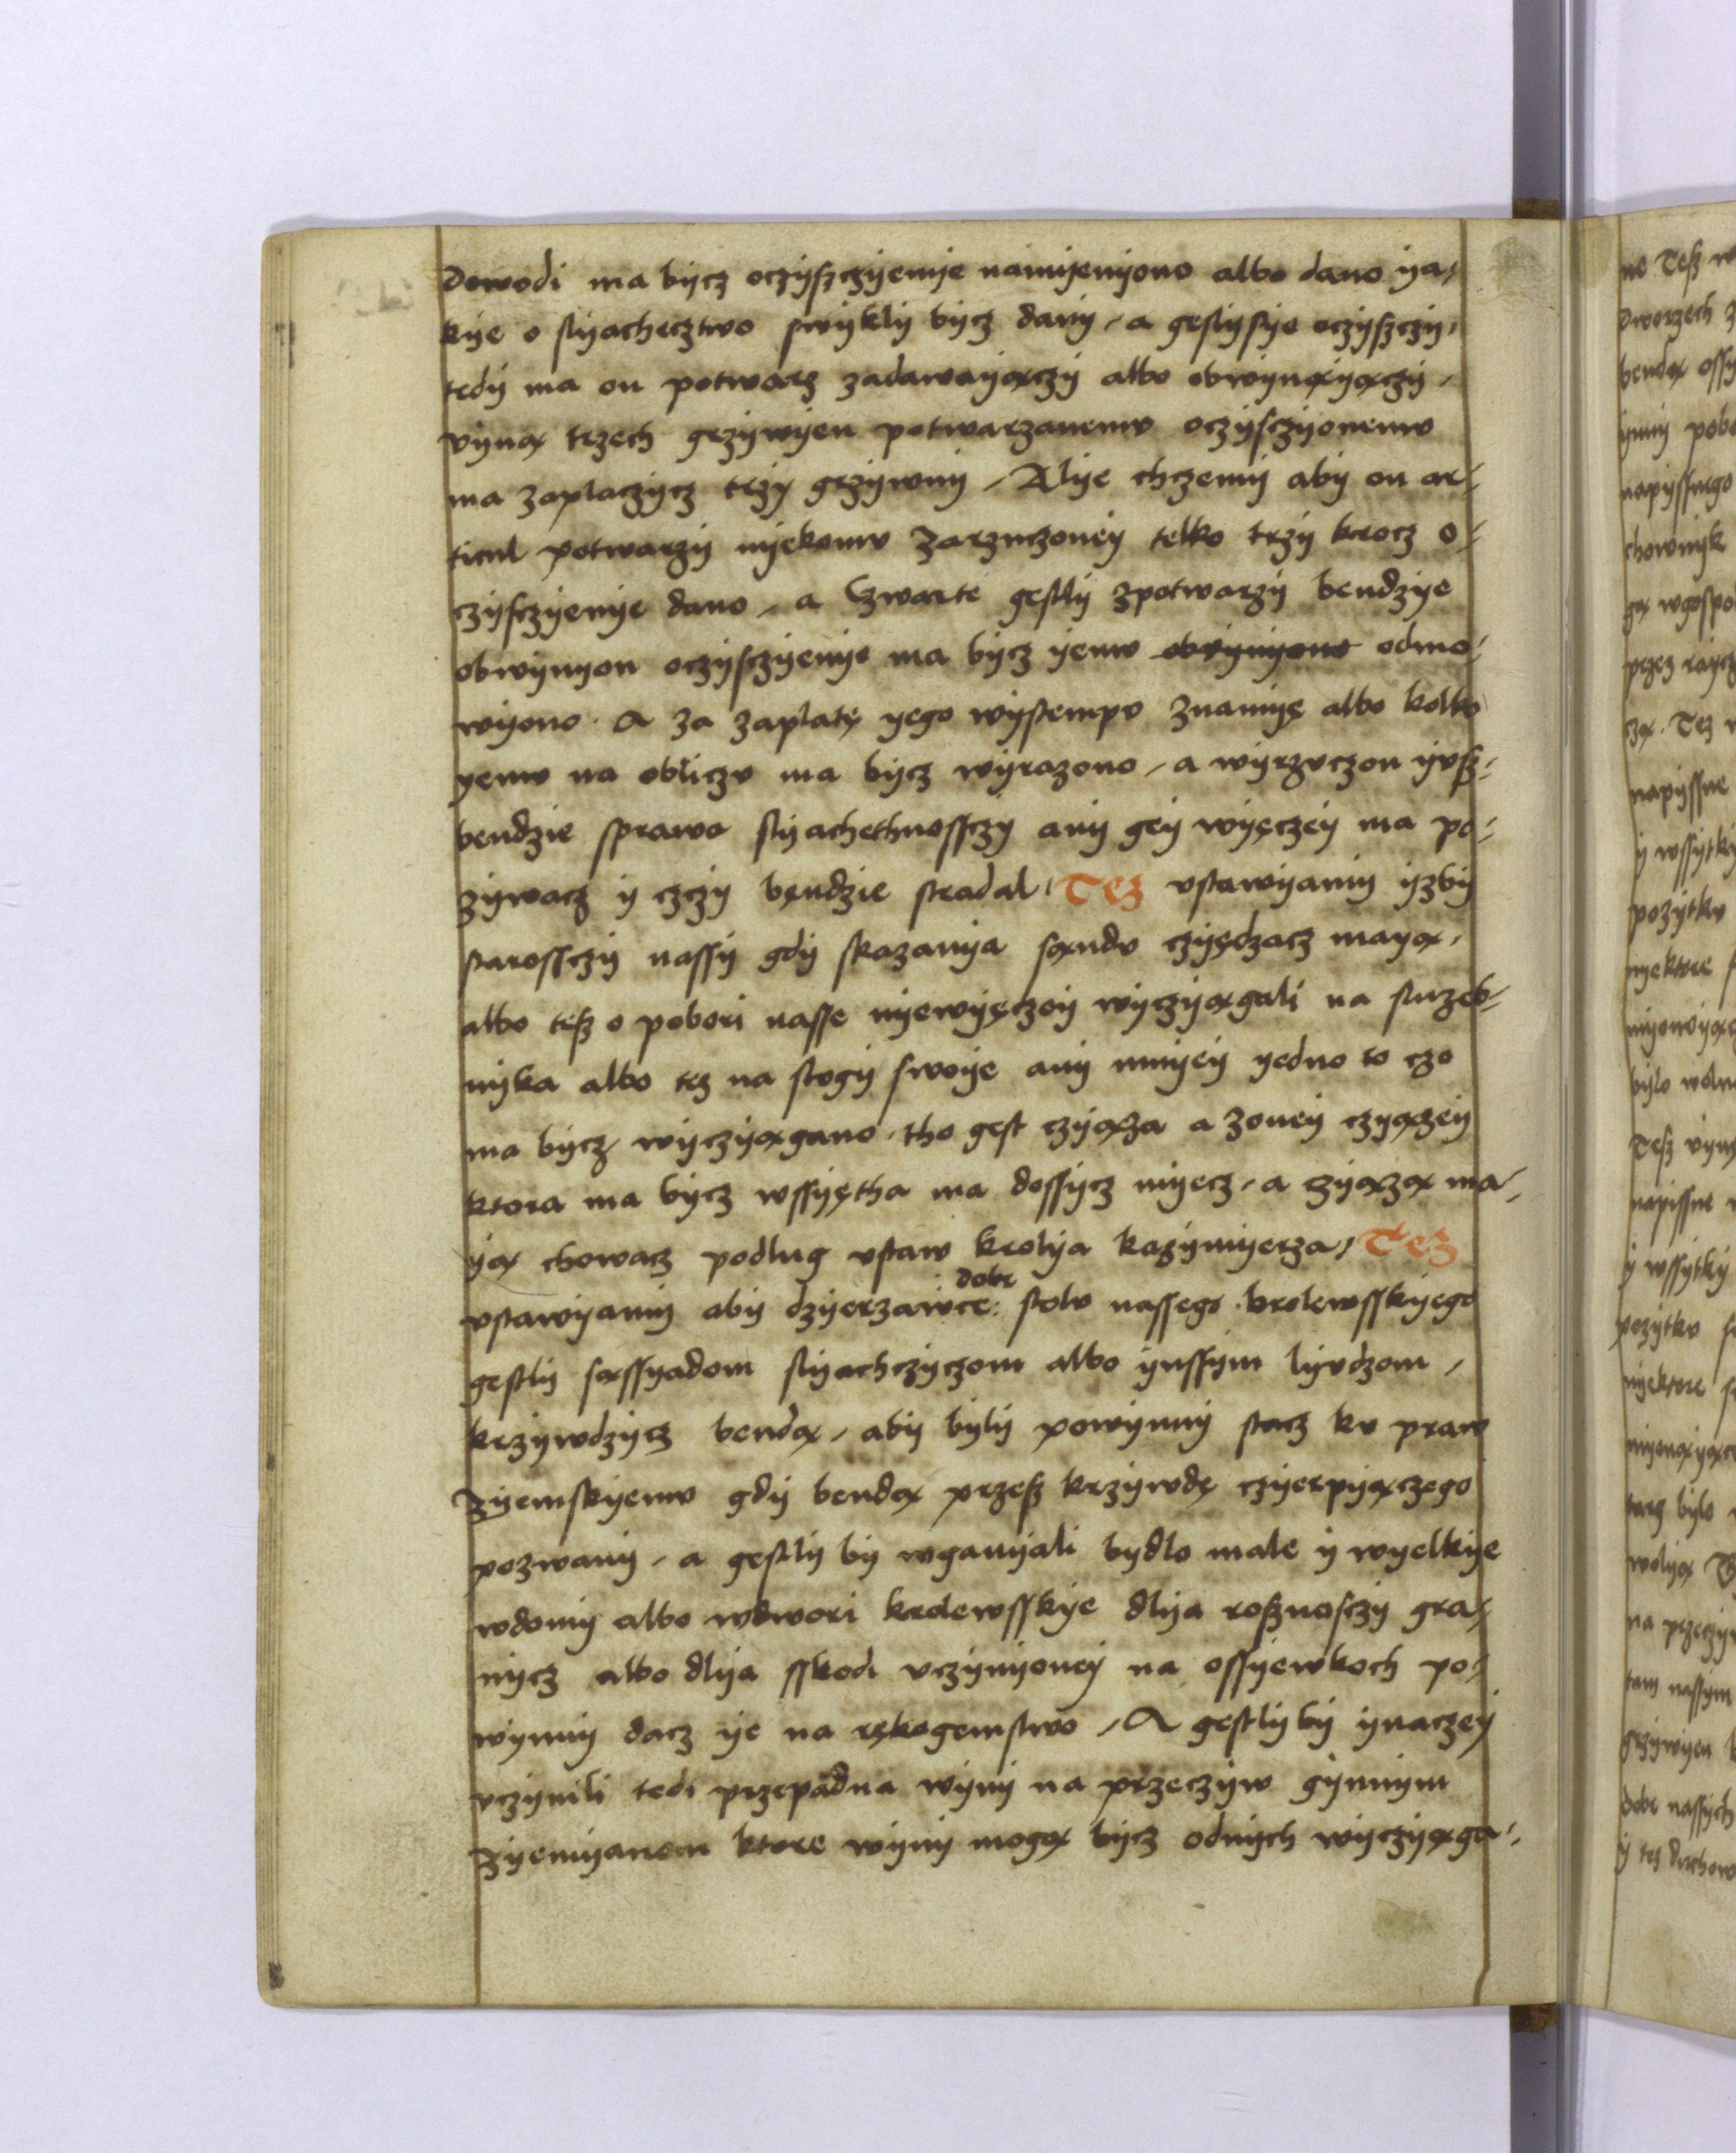 Dowodi ma bycz oczyszczyenye namyenyono albo dano ya-
kye o slyachecztwo swykly bycz dany, a geslysye oczyszczy,
tedy ma on potwarz zadawayøczy albo obwynøyøczy,
vynø trzech grzywyen potwarzanemv oczysczyonemv
ma zaplaczycz trzy grzywny, Alye chczemy aby on ar-
ticul potwarzy nyekomv zarzuczoney telko trzy krocz o-
czysczyenye dano, a Czwarte gestly zpotwarzy bendzye
obwynyon oczysczyenye ma bycz yemv obvynyono odmo-
wyono. A za zaplatę yego wystempv znamyę albo kolko
yemv na obliczv ma bycz wyrazono, a wyrzvczon yvsz-
bendzie sprawa slyachethnossczy any gey wyęczey ma po-
zywacz y czczy będzie stradal, Tez vstawyamy yzby
starossczy nassy gdy skazanya sødv czyędzacz mayø,
albo tesz o pobori nasse nyewyęczey wyczyøgali na sluzeb-
nyka albo tez na slogy swoye any mnyey yedno to czo
ma bycz wyczyøgano, tho gest czyøza a zoney czyøzey
ktora ma bycz wssyętha ma dossycz myecz, a czyøzø ma-
yø chowacz podlug vstaw krolya kazymyerza, Tez
vstawyamy aby dzyerzawce: dobr stolv nassego krolewsskyego
gestly søssyadom slyachczyczom albo ynssym lyvdzom,
krzywdzycz bendø, aby byly powynny stacz kv praw
zyemskyemv gdy bendø przesz krzywdę czyerpyøczego
pozwany, a gestly by wganyali bydlo male y wyelkye
wdomy albo wdwori krolewsskye dlya rosznosczy gra-
nycz albo dlya sskodi vczynyoney na ossyewkoch po-
wynny dacz ye na rękogemstwo, A gestly by ynaczey
vczynili tedi przepadna wyny na przeczyw gynnym
zyemyanom ktore wyny mogø bycz odnych wyczyøga-